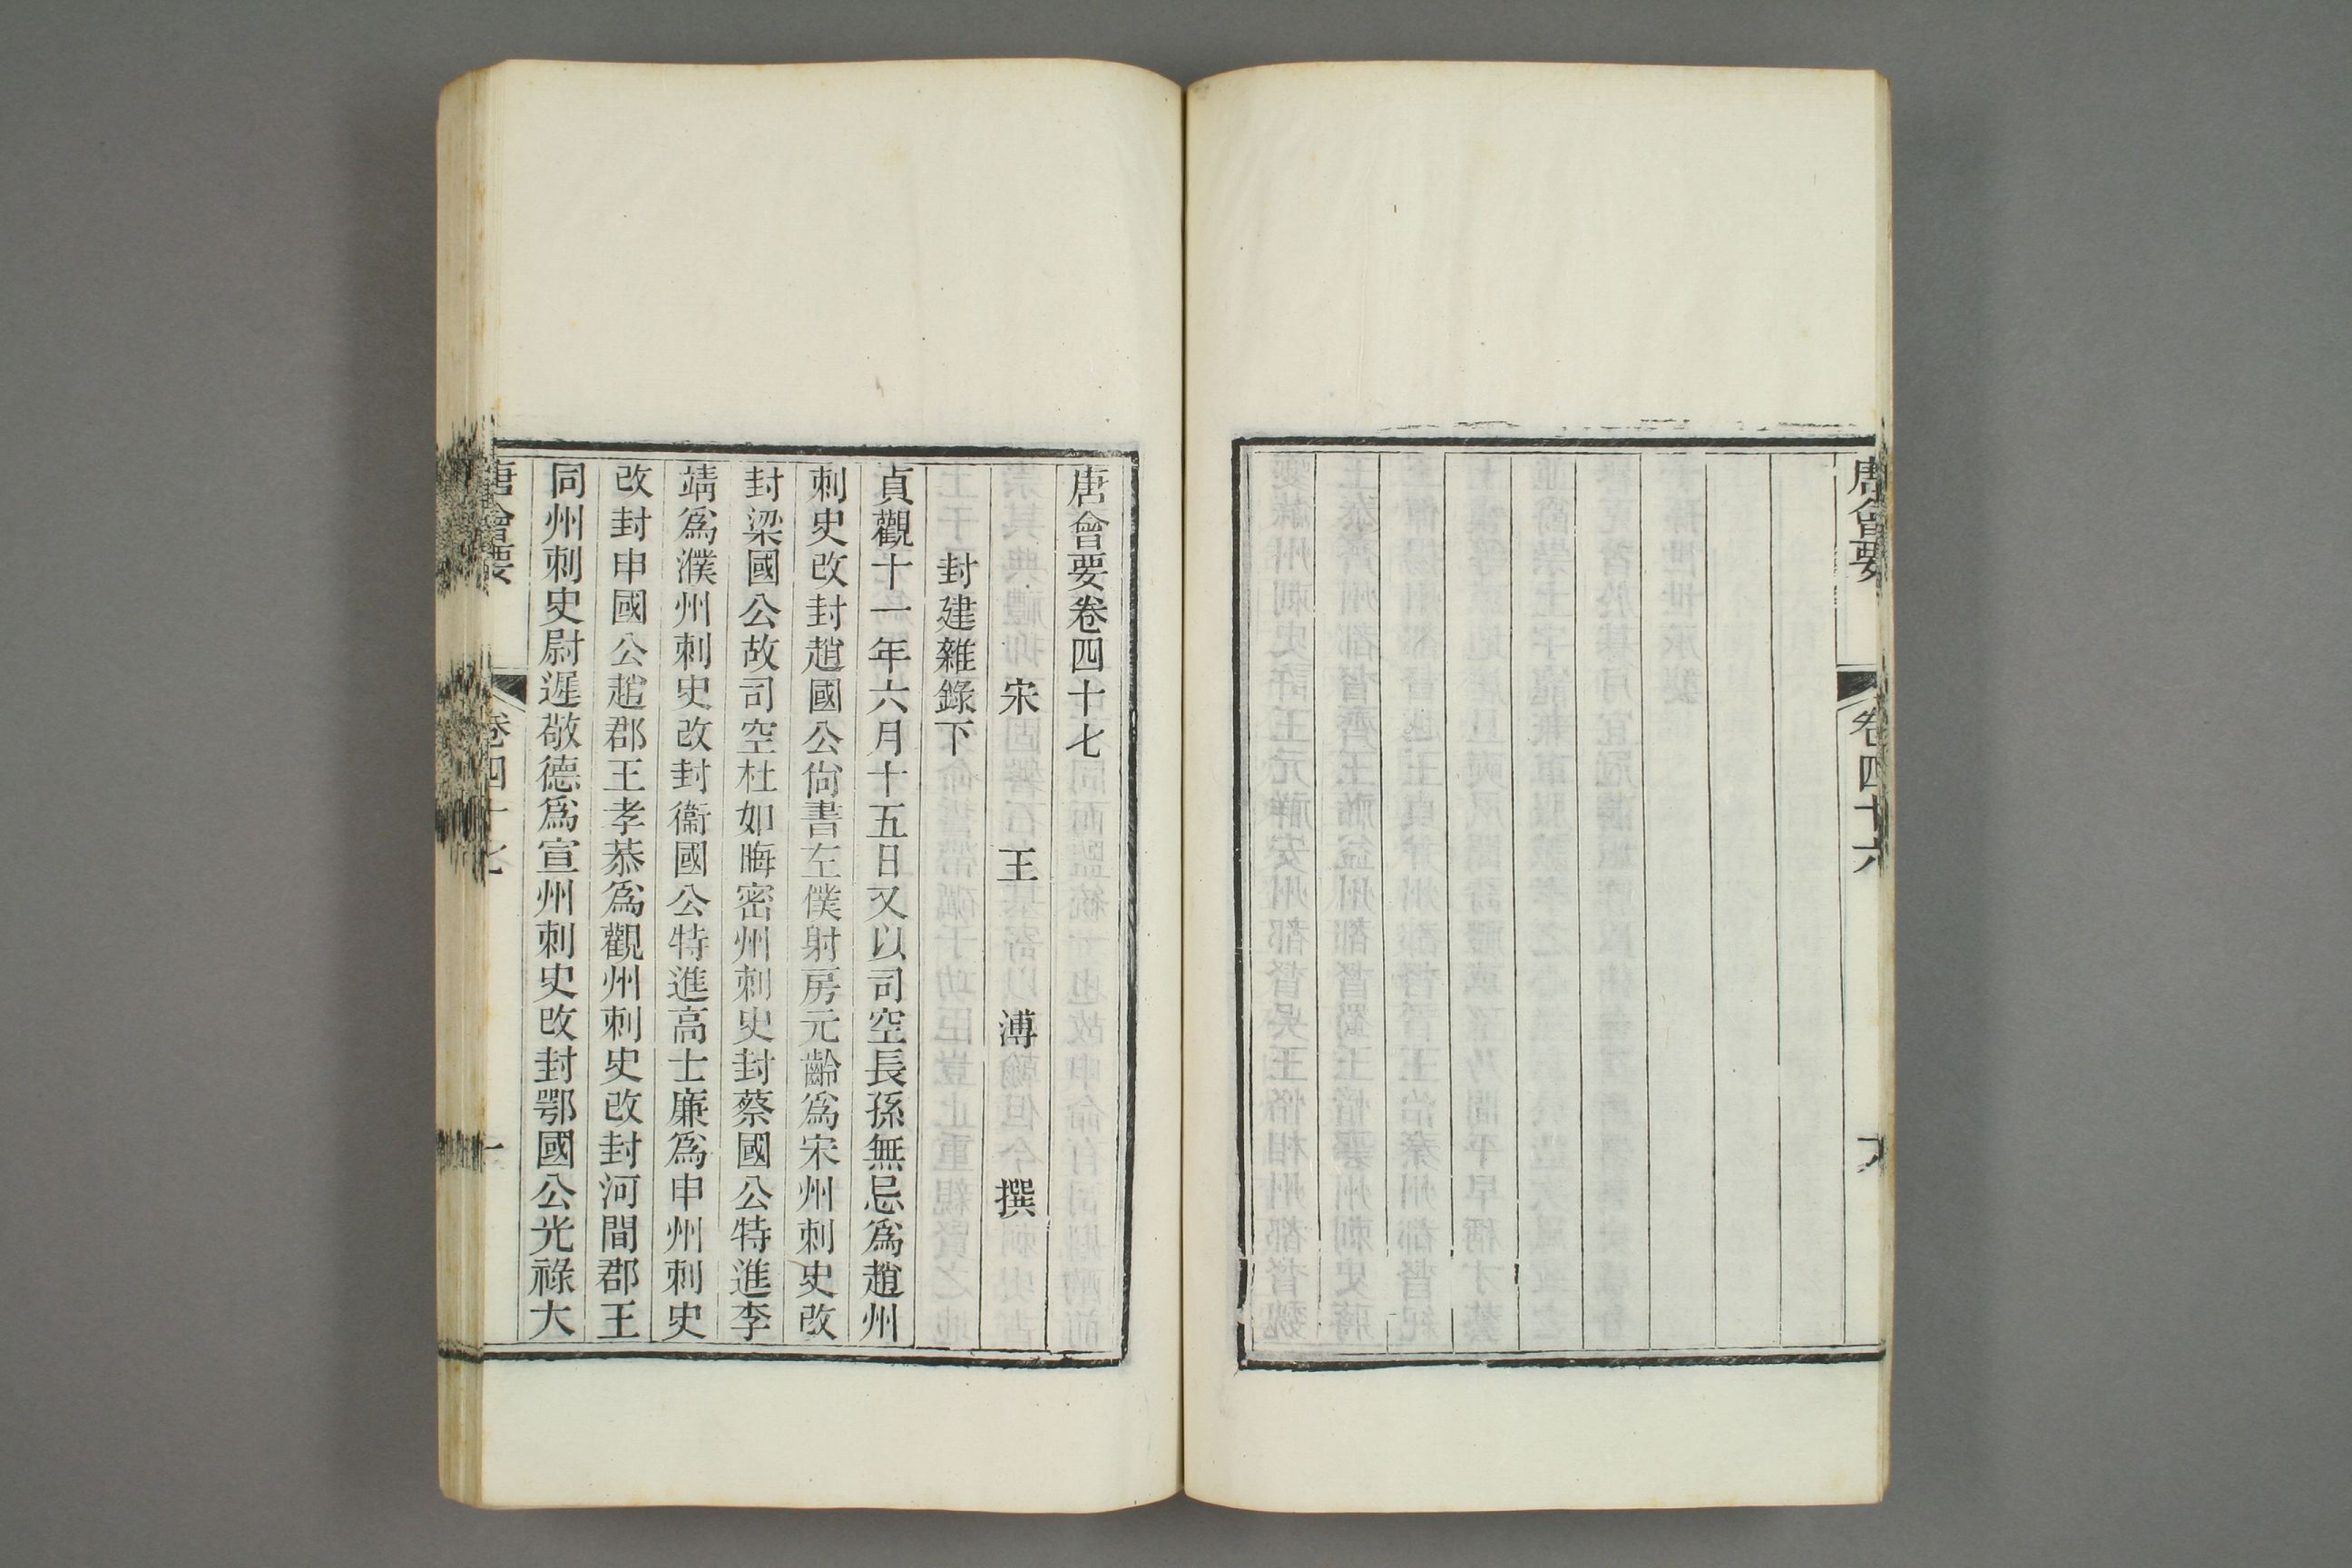 唐會要
卷四十六
唐會要卷四十七
宋 王 溥 撰
封建雜錄下
貞觀十一年六月十五日又以司空長孫無忌爲趙州
刺史改封趙國公尙書左僕射房元齡爲宋州刺史改
封梁國公故司空杜如晦密州刺史封蔡國公特進李
靖爲濮州刺史改封衞國公特進高士廉爲申州刺史
改封申國公趙郡王孝恭爲觀州刺史改封河間郡王
同州刺史尉遲敬德爲宣州刺史改封鄂國公光祿大
唐會要
卷四十七
一